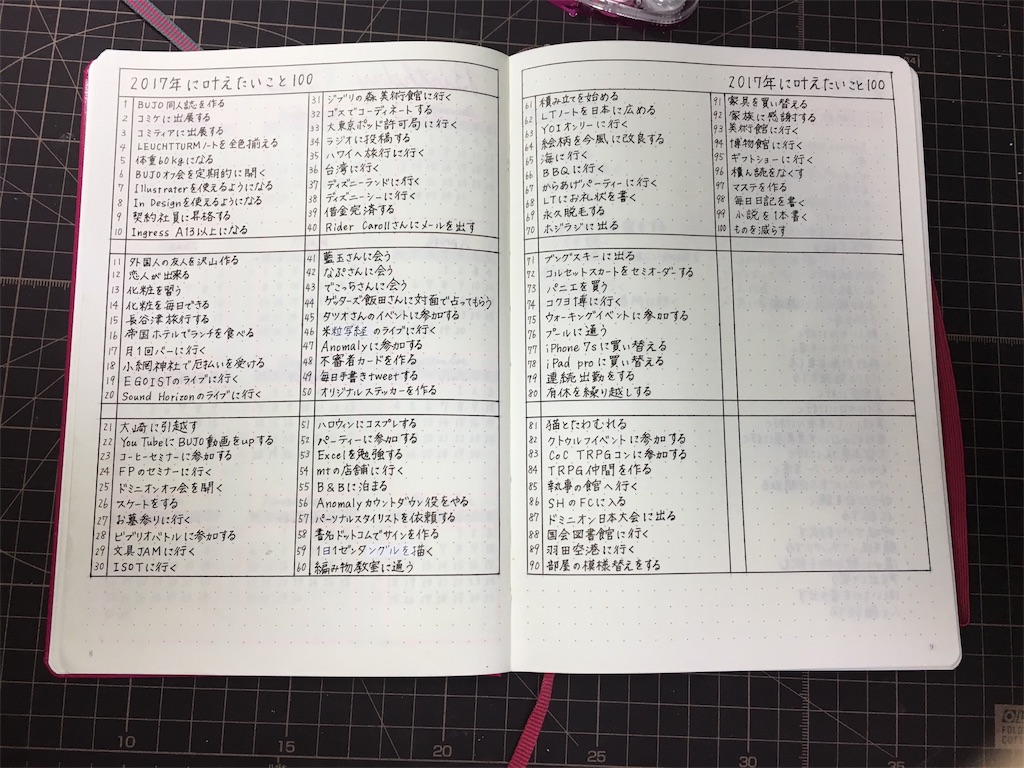 2017年に叶えたいこと100
1 BUJO同人誌を作る
2 コミケに出展する
3 コミティアに出展する
4 LEUCHTTURMノートを全色揃える
5 体重60kgになる
6 BUJOオフ会を定期的に開く
7 Illustraterを使えるようになる
8 In Designを使えるようになる
9 契約社員に昇格する
10 Ingress A13以上になる
11 外国人の友人を沢山作る
12 恋人が出来る
13 化粧を習う
14 化粧を毎日できる
15 長谷津旅行する
16 帝国ホテルでランチを食べる
17 月1回バーに行く
18 小網神社で厄払いを受ける
19 EGOISTのライブに行く
20 Sound Horizonのライブに行く
21 大崎に引越す
22 YouTubeにBUJO動画をupする
23 コーヒーセミナーに参加する
24 FPのセミナーに行く
25 ドミニオンオフ会を開く
26 スケートをする
27 お墓参りに行く
28 ビブリオバトルに参加する
29 文具JAMに行く
30 ISOTに行く
31 ジブリの森美術館に行く
32 ゴスでコーディネートする
33 大東京ポッド許可局に行く
34 ラジオに投稿する
35 ハワイへ旅行に行く
36 台湾に行く
37 ディズニーランドに行く
38 ディズニーシーに行く
39 借金完済する
40 Rider Carollさんにメールを出す
41 藍玉さんに会う
42 なぷさんに会う
43 でこっちさんに会う
44 ゲッターズ飯田さんに対面で占ってもらう
45 タツオさんのイベントに参加する
46 米粒写経のライブに行く
47 Anomalyに参加する
48 不審者カードを作る
49 毎日手書きtweetする
50 オリジナルステッカーを作る
51 ハロウィンにコスプレする
52 パーティーに参加する
53 Excelを勉強する
54 mtの店舗に行く
55 B&Bに泊まる
56 Anomalyカウントダウン役をやる
57 パーソナルスタイリストを依頼する
58 署名ドットコムでサインを作る
59 1日1ゼンタングルを描く
60 編み物教室に通う
2017年に叶えたいこと100
61 積み立てを始める
62 LTノートを日本に広める
63 YOIオンリーに行く
64 絵柄を今風に改良する
65 海に行く
66 BBQに行く
67 からあげパーティーに行く
68 LTにお礼状を書く
69 永久脱毛する
70 ホジラジに出る
71 ブングスキーに出る
72 コルセットスカートをセミオーダーする
73 パニエを買う
74 コクヨ博に行く
75 ウォーキングイベントに参加する
76 プールに通う
77 iPhone7sに買い替える
78 iPad proに買い替える
79 連続出勤をする
80 有休を繰り越しする
81 猫とたわむれる
82 クトゥルフイベントに参加する
83 CoC TRPGコンに参加する
84 TRPG仲間を作る
85 執事の館へ行く
86 SHのFCに入る
87 ドミニオン日本大会に出る
88 国会図書館に行く
89 羽田空港に行く
90 部屋の模様替えをする
91 家具を買い替える
92 家族に感謝する
93 美術館に行く
94 博物館に行く
95 ギフトショーに行く
96 積ん読をなくす
97 マステを作る
98 毎日日記を書く
99 小説を1本書く
100 ものを減らす
8
9
10
15
20
25
30
35
FOLD